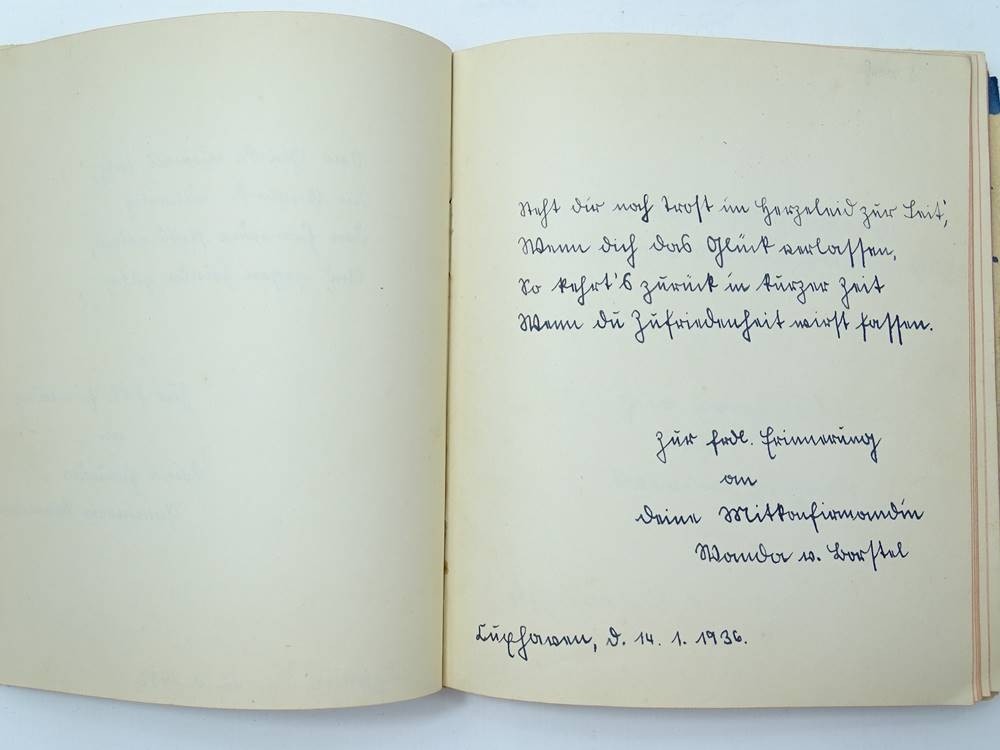 Steht dir noch Trost im Herzeleid zur Seit',
Wenn dich das Glück verlassen,
So kehrt's zurück in kurzer Zeit
Wenn du Zufriedenheit wirst fassen.
Zur frdl. Erinnerung
an
deine Mitkonfirmandin
Wanda v. Borstel
Cuxhaven, d. 14. 1. 1936.